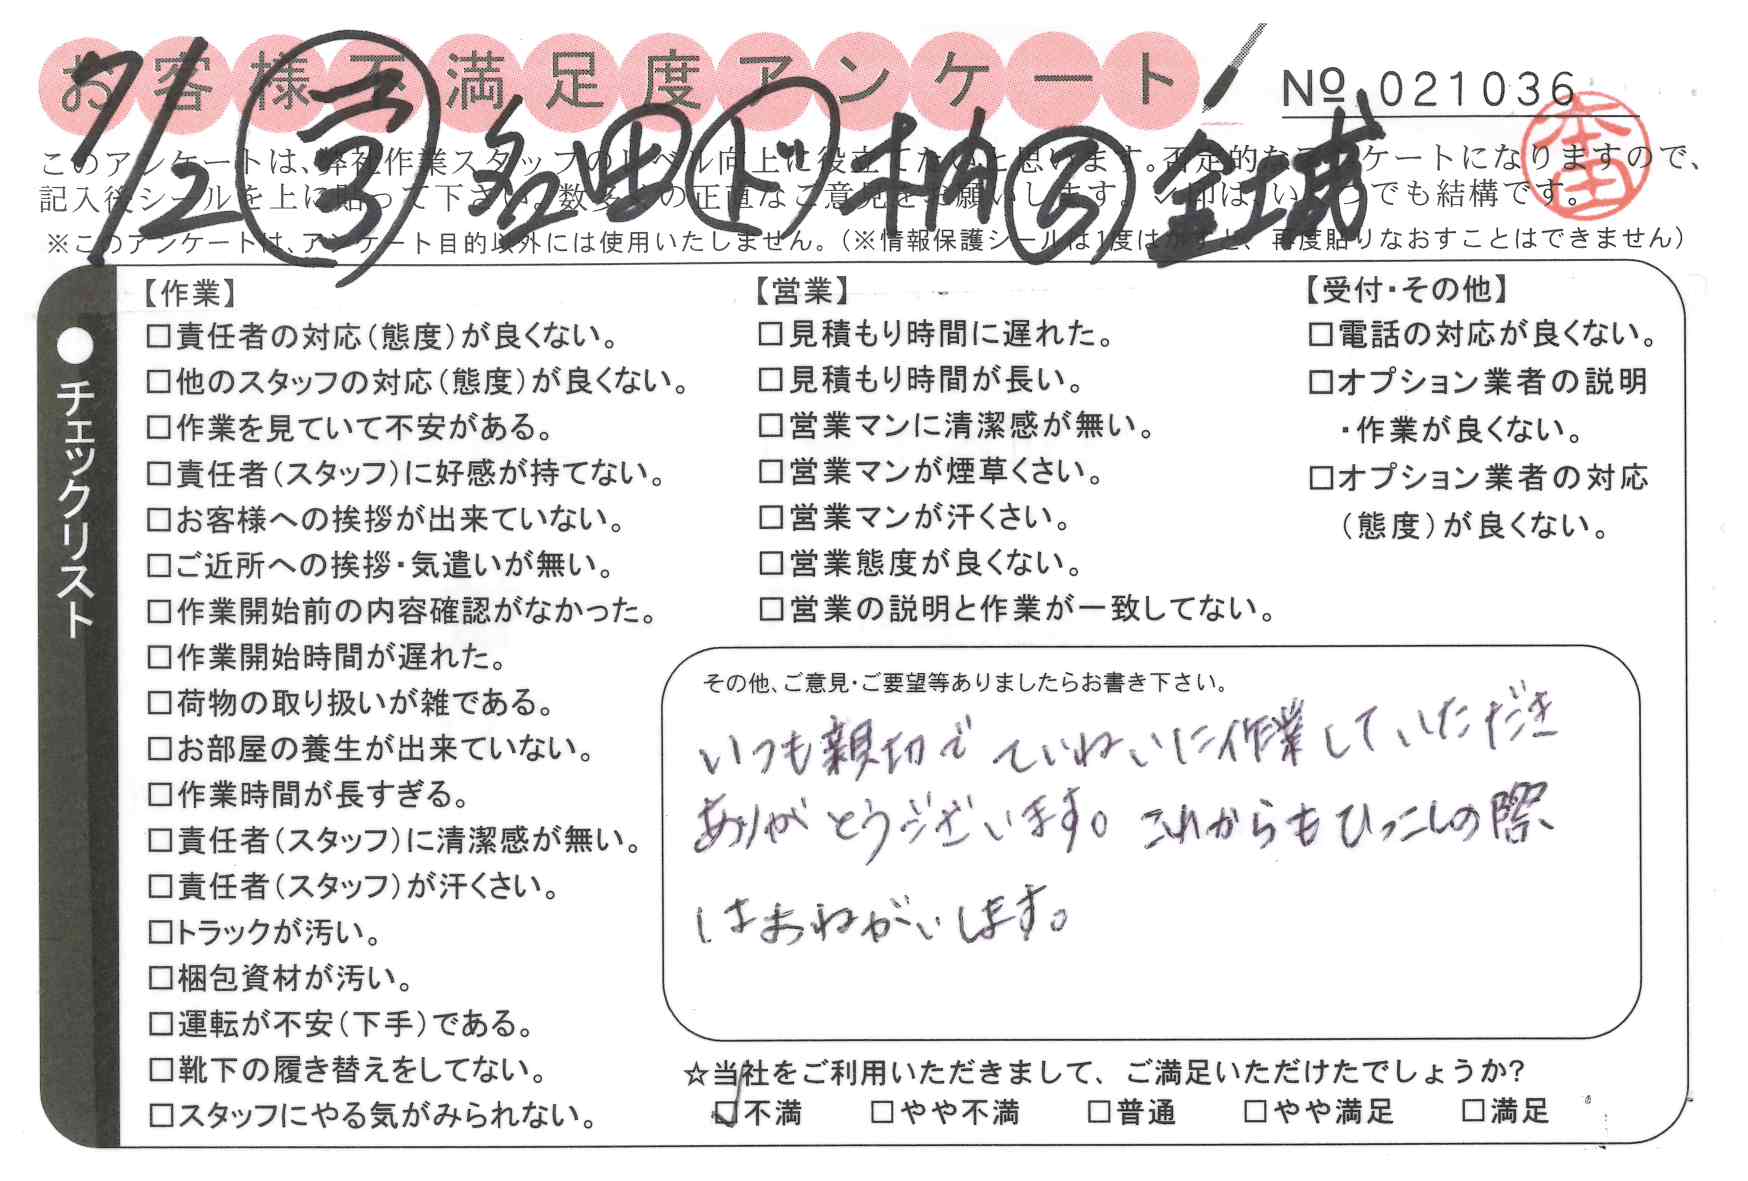 お客様不満足度アンケート
No 021036
7/2
このアンケートは、弊社作業スタッフのレベル向上に役立てたいと思います。否定的なアンケートになりますので、
記入後シールを上に貼って下さい。数多くの正直なご意見をお願いします。✓印は、いくつでも結構です。
※このアンケートは、アンケート目的以外には使用いたしません。(※情報保護シールは1度はがすと、再度貼りなおすことはできません)
●チェックリスト
【作業】
□責任者の対応(態度)が良くない。
□他のスタッフの対応(態度)が良くない。
□作業を見ていて不安がある。
□責任者(スタッフ)に好感が持てない。
□お客様への挨拶が出来ていない。
□ご近所への挨拶・気遣いが無い。
□作業開始前の内容確認がなかった。
□作業開始時間が遅れた。
□荷物の取り扱いが雑である。
□お部屋の養生が出来ていない。
□作業時間が長すぎる。
□責任者(スタッフ)に清潔感が無い。
□責任者(スタッフ)が汗くさい。
□トラックが汚い。
□梱包資材が汚い。
□運転が不安(下手)である。
□靴下の履き替えをしてない。
□スタッフにやる気がみられない。
【営業】
□見積もり時間に遅れた。
□見積もり時間が長い。
□営業マンに清潔感が無い。
□営業マンが煙草くさい。
□営業マンが汗くさい。
□営業態度が良くない。
□営業の説明と作業が一致してない。
【受付・その他】
□電話の対応が良くない。
□オプション業者の説明
・作業が良くない。
□オプション業者の対応
(態度)が良くない。
その他、ご意見・ご要望等ありましたらお書き下さい。
いつも親切で ていねいに作業していただき
ありがとうございます。これからもひっこしの際、
はおねがいします。
☆当社をご利用いただきまして、ご満足いただけたでしょうか?
☑不満 □やや不満 □普通 □やや満足 □満足